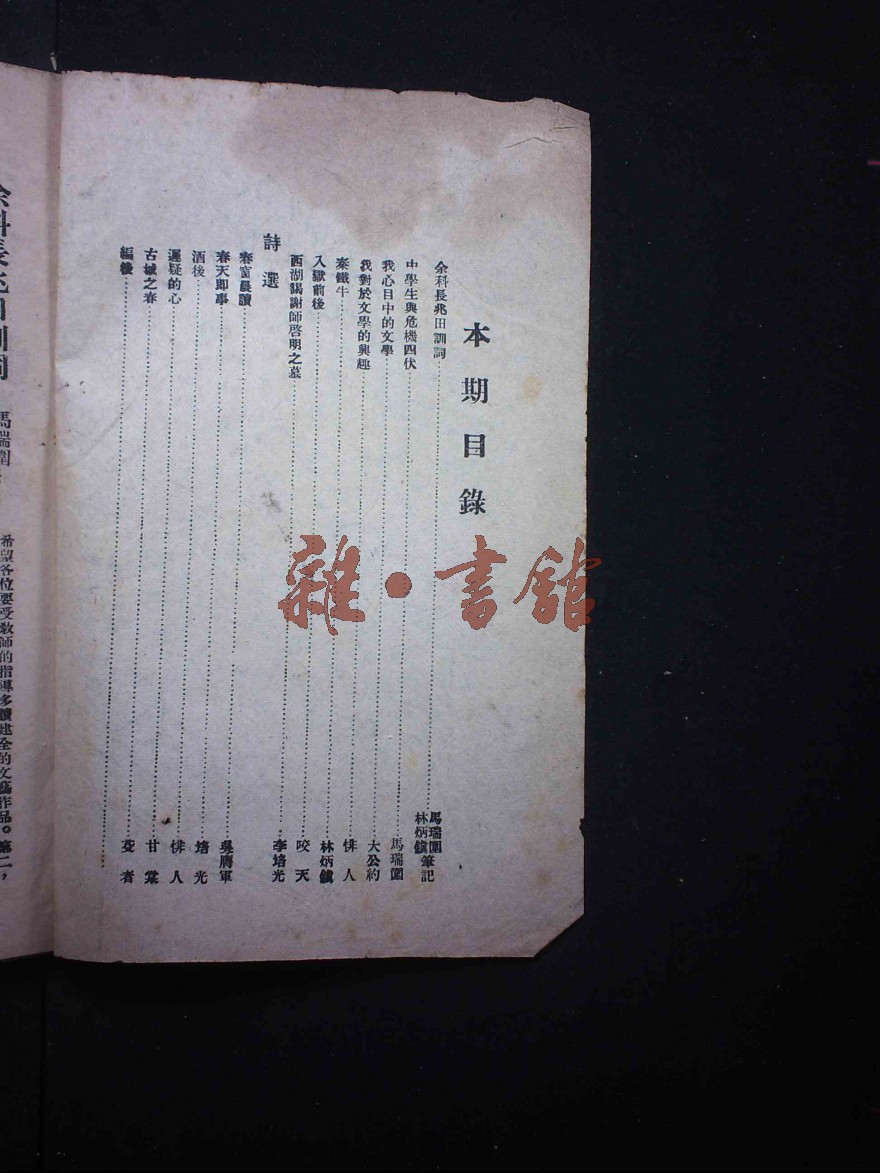 本期目錄
余科長兆田訓詞 馬瑞圖 林炳鎮 筆記
中學生與危機四伏 馬瑞圖
我心目中的文學 大公約
我對於文學的興趣 俳人
秦鐵牛 林炳鎮
入獄前後 咬天
西湖謁謝師啓明之墓 李培光
詩選
春窗晨讀
春天即事 吳膺軍
酒後 培光
遲疑的心 俳人
古城之春 甘棠
編後 者
雜·書館
馬瑞圖
希望各位要受敎師的指導多讀健全的文藝作品。第二，